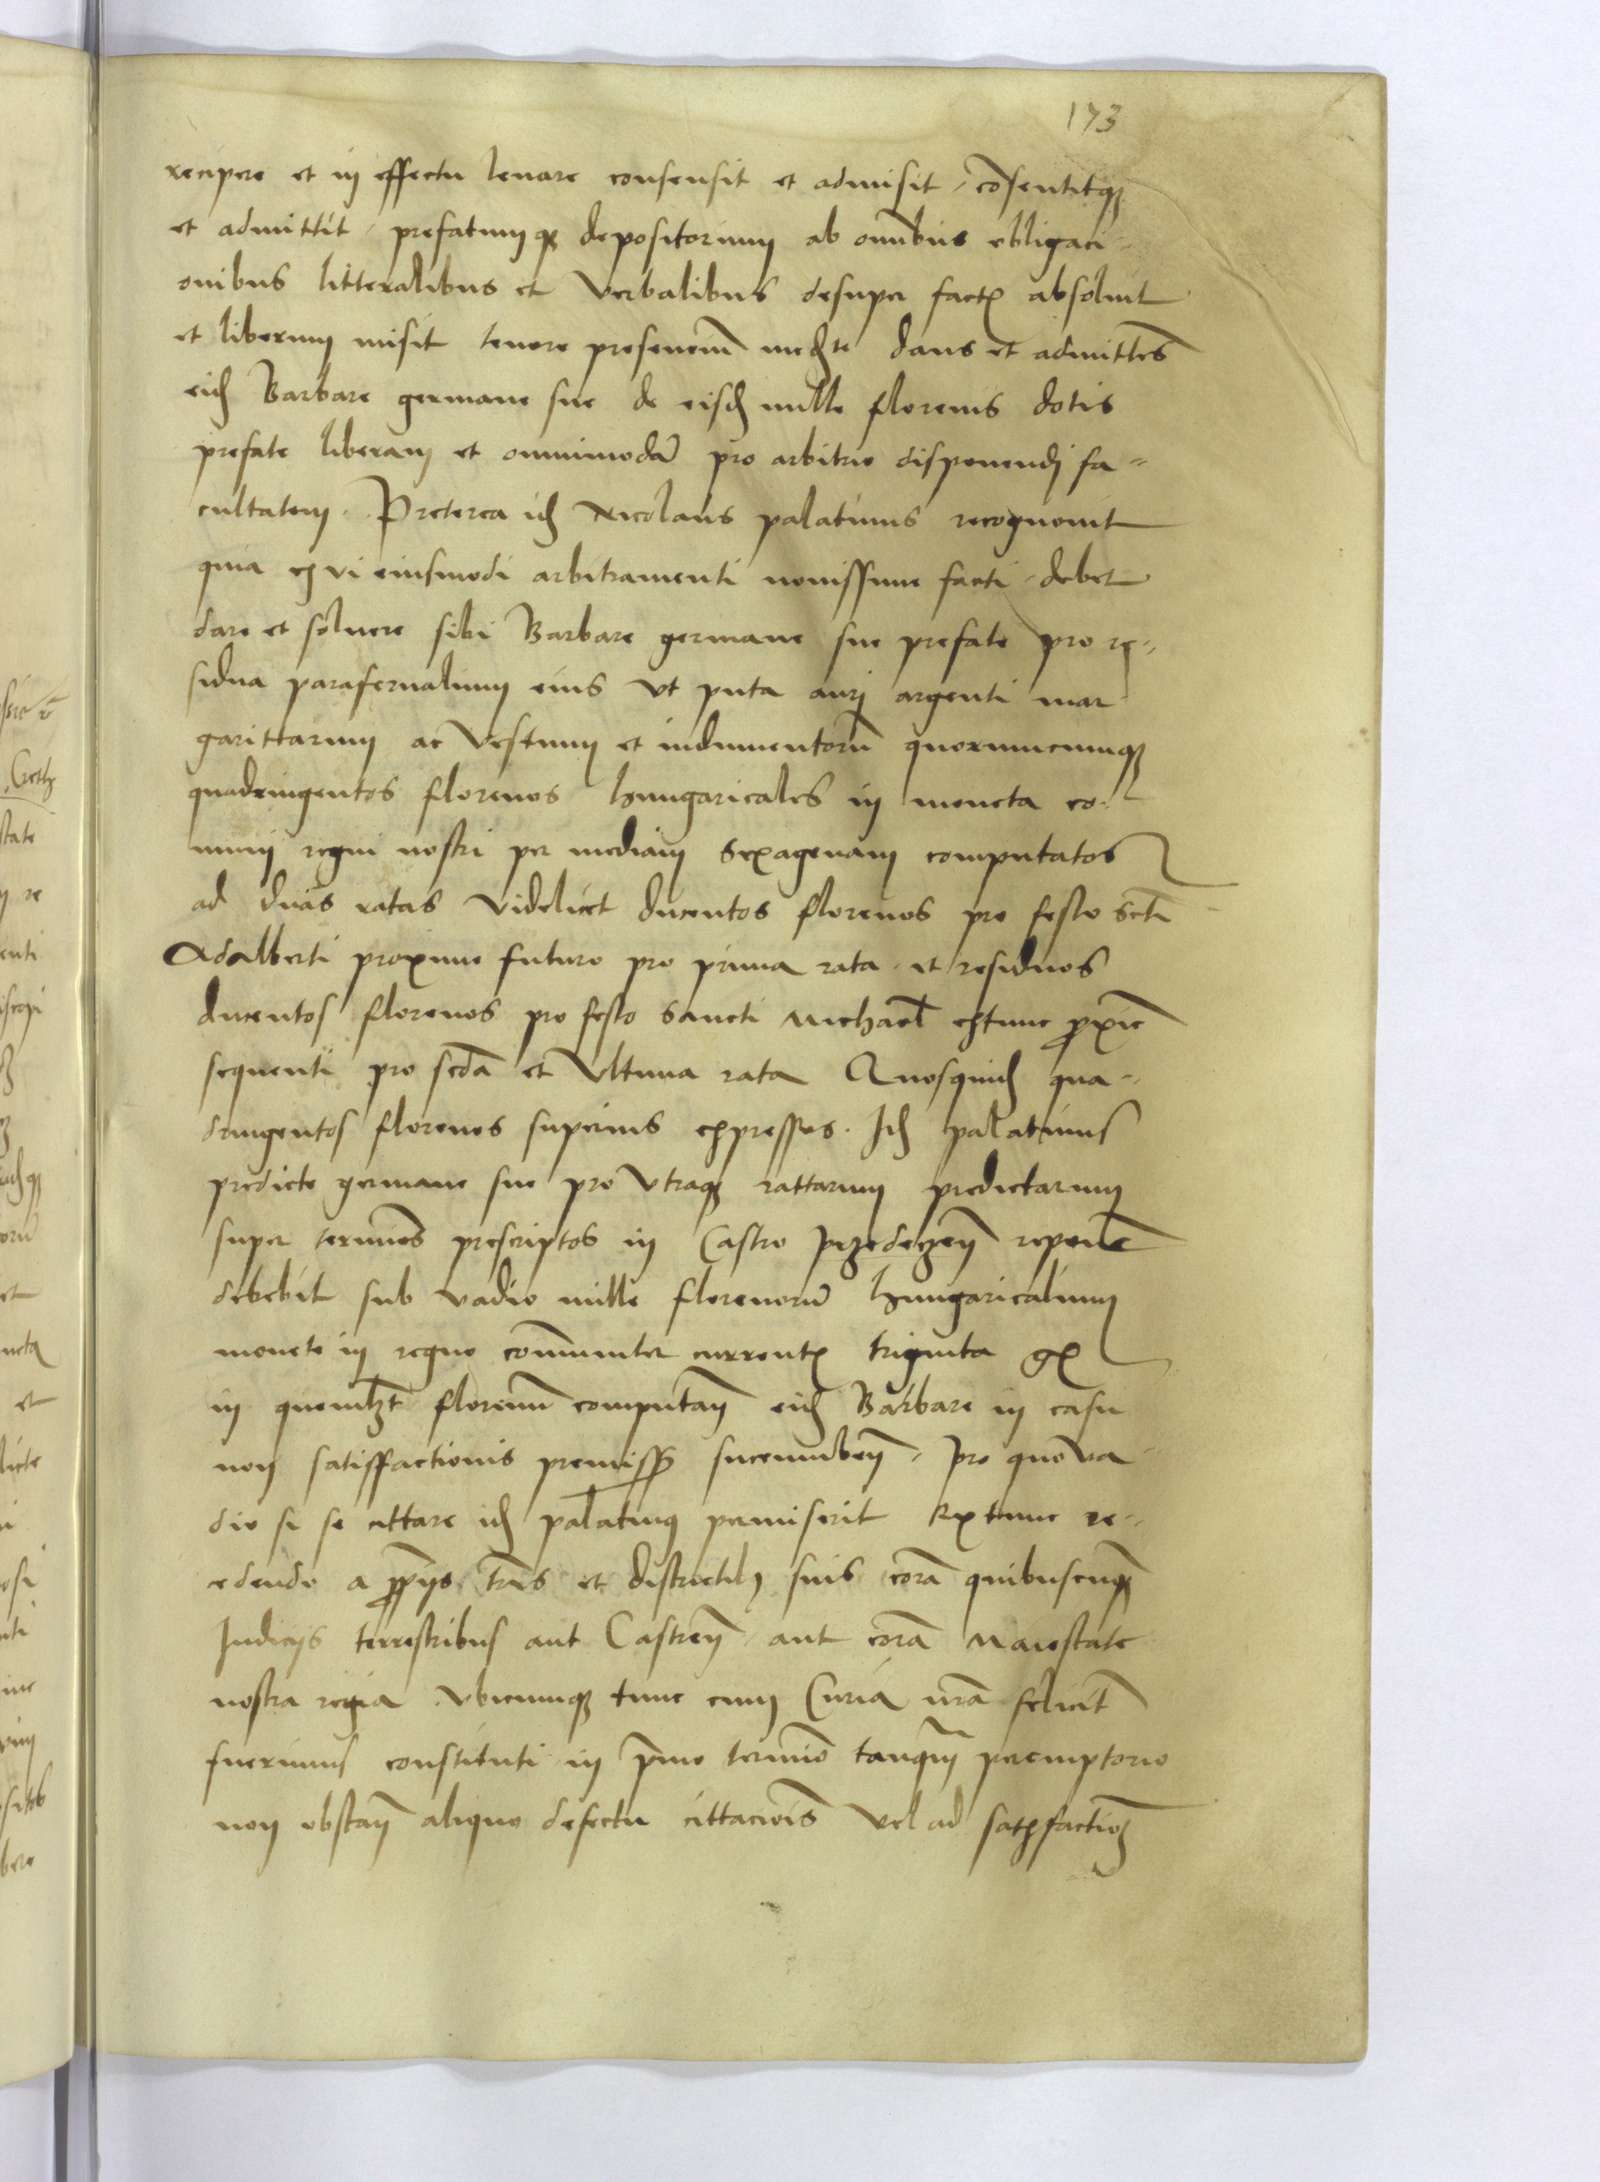 173
recipere et in effectu leuare consensit et admisit, cōsentitqꝫ
et admittit, prefatumqꝫ depositorium ab om̄bus obligaci-
onibus litteralibus et verbalibus desuper factꝭ absoluit
et liberum misit tenore presencium medᵗᵉ dans et admittēs
eidꝫ Barbare germane sue de eisdꝫ mille florenis dotis
prefate liberam et omnimodā pro arbitrio disponendi fa-
cultatem. Preterea idꝫ Nicolaus palatinus recognouit
quia ex vi eiusmodi arbitramenti nouissime facti, debet
dare et soluere sibi Barbare germane sue prefate pro re-
sidua parafernalium eius vt puta auri argenti mar-
garittarum ac vestium et indumentorū quorumcumqꝫ
quadringentos florenos hungaricales in moneta co-
muni regni nostri per mediam sexagenam computatos
ad duas ratas videlicet ducentos florenos pro festo scti
Adalberti proxime futuro pro prima rata, et residuos
ducentos florenos pro festo sancti Michael extunc ꝓxie
sequenti pro secda et vltima rata Quosquidꝫ qua-
dringentos florenos superius expressos. Idꝫ palatinus
predicte germane sue pro vtraqꝫ rattarum predictarum
super terminos prescriptos in Castro Przedeczeñ reponē
debebit sub vadio mille florenorū hungaricalium
monete in regno com̄uniter currentꝭ triginta gꝭ
in quemlꝫt florenū computañ eidꝫ Barbare in casu
non satisfactionis premissꝫ succumbeñ, pro quo va-
dio si se cittare idꝫ palatinus permiserit Extunc re-
cedendo a ꝓpriis tr̄is et districtibꝫ suis corā quibuscunqꝫ
Iudicijs terrestribus aut Castreñ, aut corā Maiestate
nostra regia vbicumqꝫ tunc cum Curia nrā felicit̄
fuerimus constituti in p̄mo termino tanqm̄ peremptorio
non obstañ aliquo defectu cittacois vel ad satisfactioꝫ